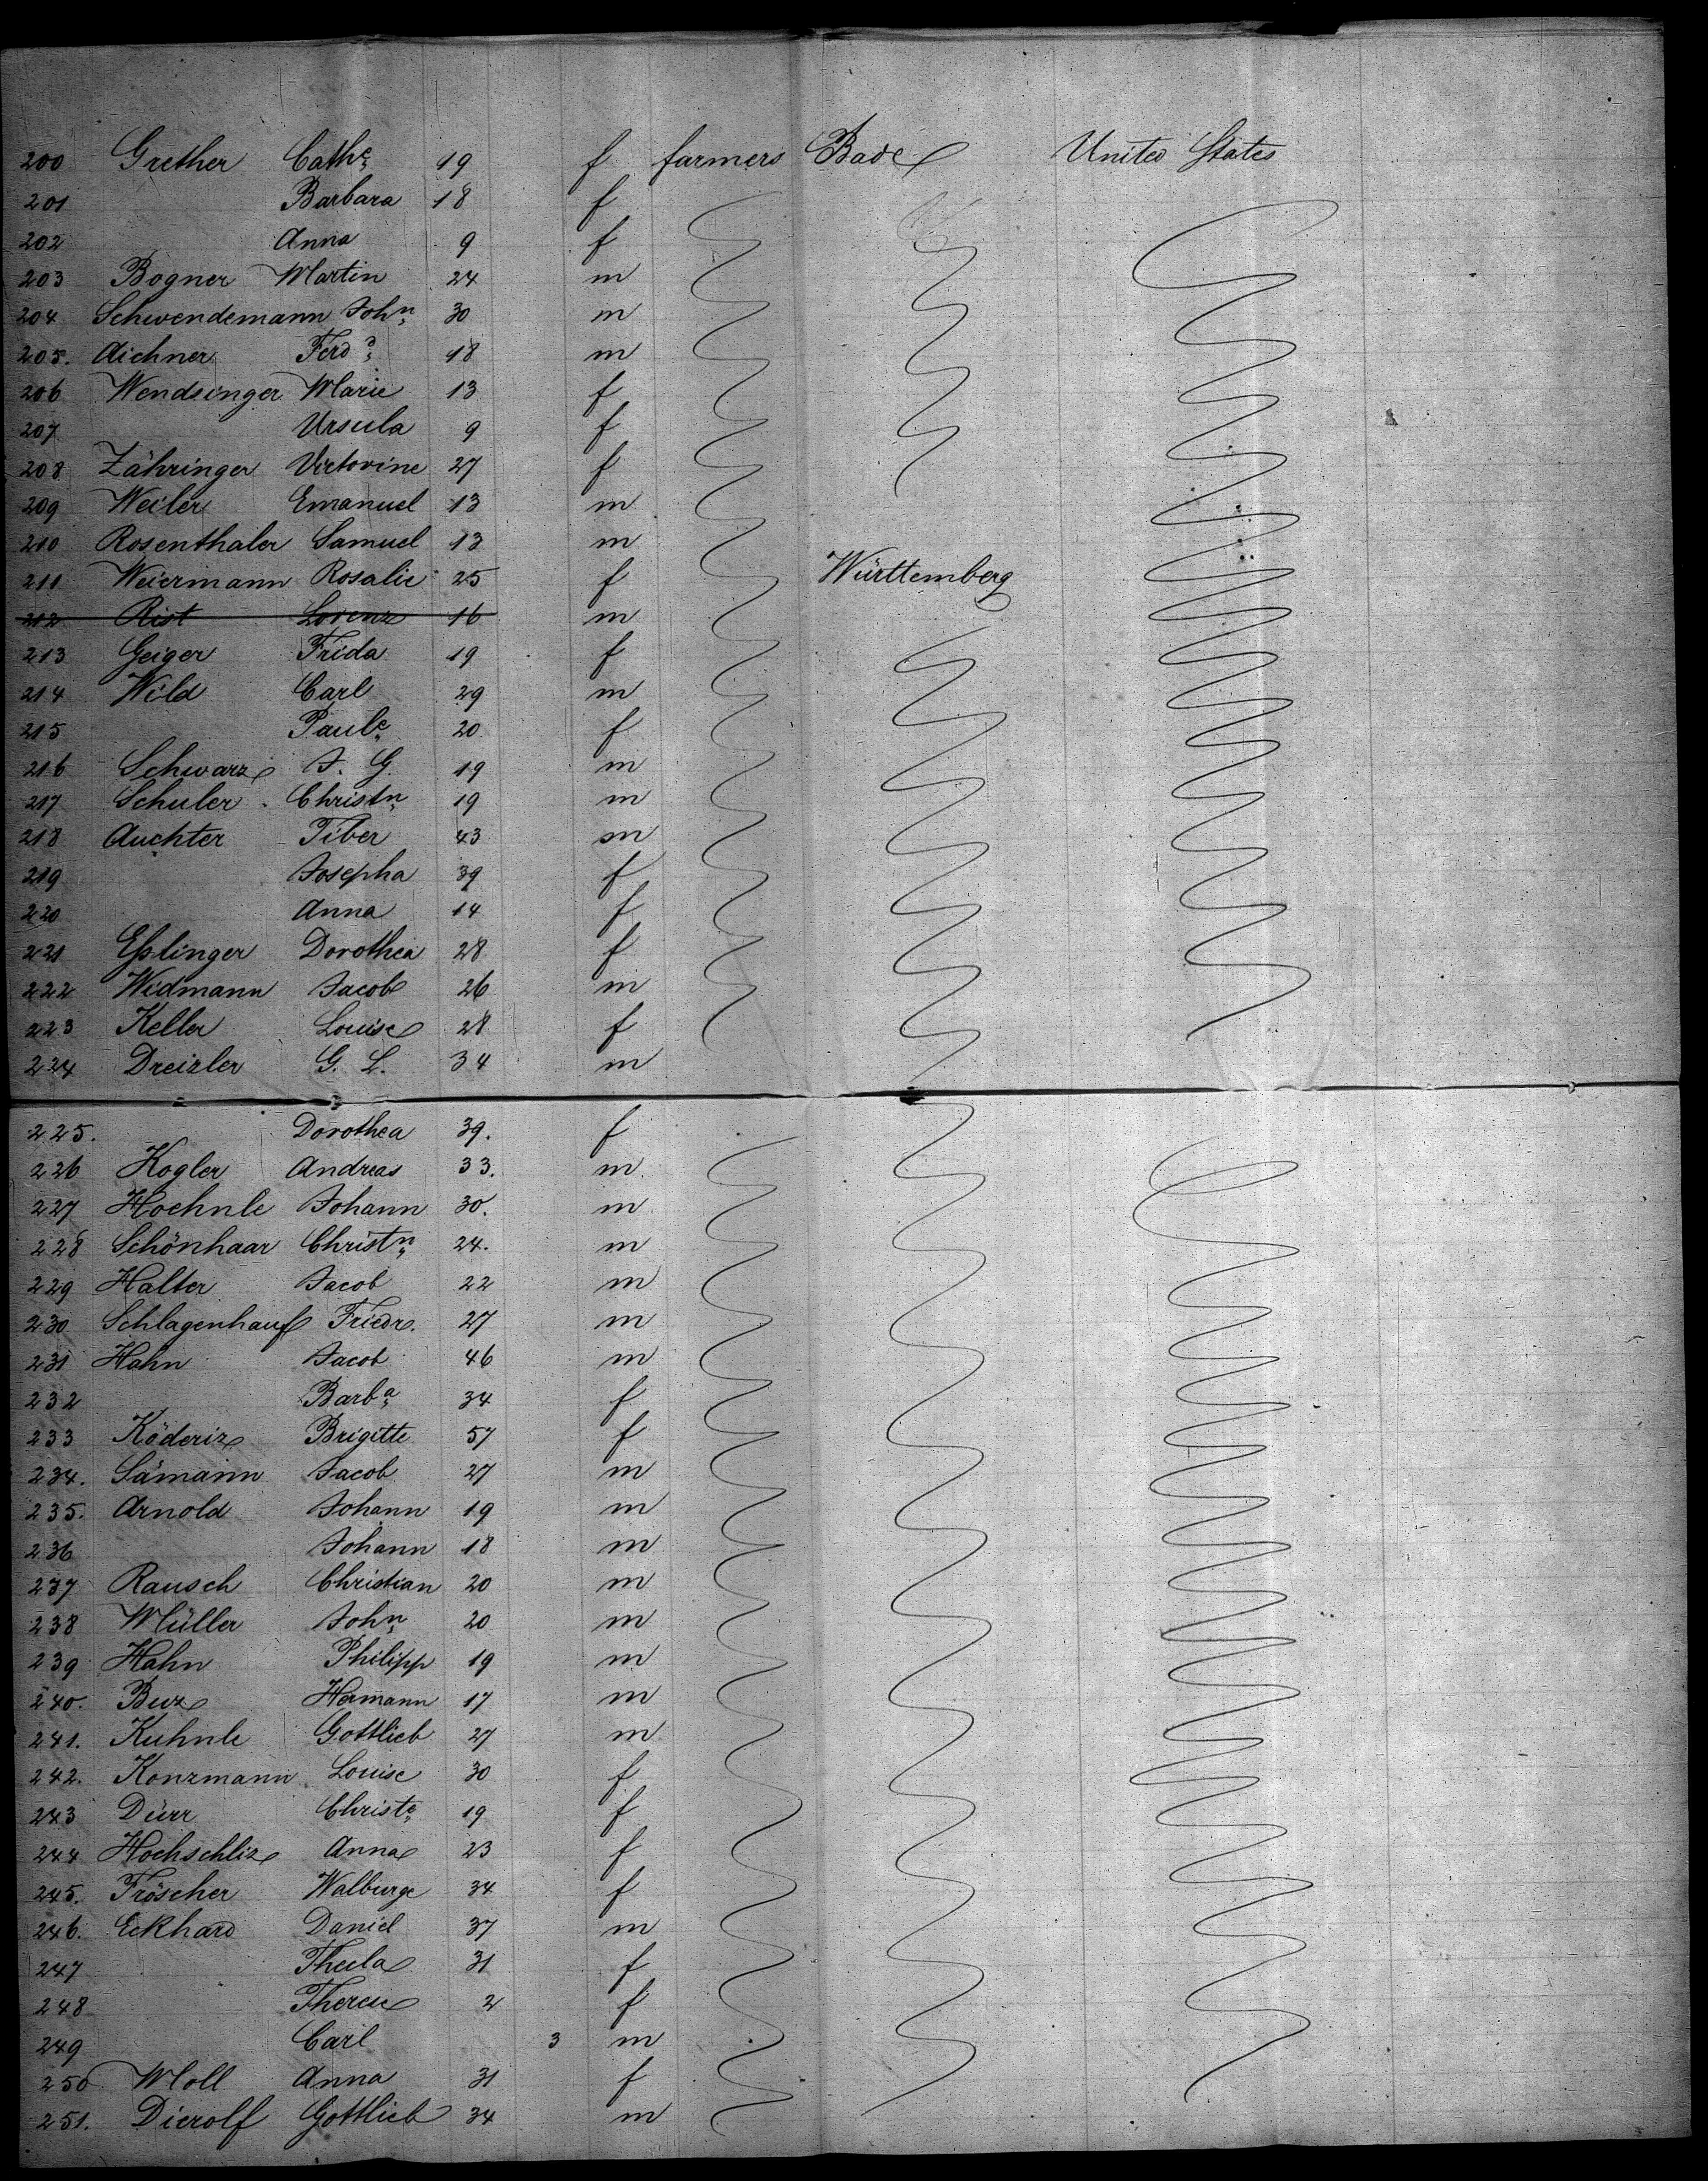 200 Grether Cathe 19 f farmers Bade United States
201 Barbara 18 f
202 Anna 9 f
203 Bogner Martin 24 m
204 Schwendemann John 30 m
205. Aichner Ferdd 18 m
206 Wendsinger Marie 13 f
207 Ursula 9 f
208 Zähringer Victorine 27 f
209 Weiler Emanuel 13 m
210 Rosenthaler Samuel 13 m
211 Weiermann Rosalie 25 f Württemberg
212 Rist Lorenz 16 m
213 Geiger Frida 19 f
214 Wild Carl 29 m
215 Paule 20 f
216 Schwarz J. G. 19 m
217 Schuler Christn 19 m
218 Auchter Tiber 43 m
219 Josepha 39 f
220 Anna 14 f
221 Eßlinger Dorothea 28 f
222 Widmann Jacob 26 m
223 Keller Louise 28 f
224 Dreizler G. L. 34 m
225. Dorothea 39. f
226 Kogler Andreas 33. m
227 Hoehnle Johann 30. m
228 Schönhaar Christn 24. m
229 Halter Jacob 22 m
230 Schlagenhauf Friedr. 27 m
231 Hahn Jacob 46 m
232 Barba 34 f
233 Köderiz Brigitte 57 f
234. Sämann Jacob 27 m
235. Arnold Johann 19 m
236 Johann 18 m
237 Rausch Christian 20 m
238 Müller John 20 m
239 Hahn Philipp 19 m
240. Buz Hermann 17 m
241. Kuhnle Gottlieb 27 m
242. Konzmann Louise 30 f
243 Dürr Christe 19 f
244 Hochschliz Anna 23 f
245. Fröscher Walburge 34 f
246. Eckhard Daniel 37 m
247 Thecla 31 f
248 Therese 2 f
249 Carl 3 m
250 Moll Anna 31 f
251. Dierolf Gottlieb 34 m